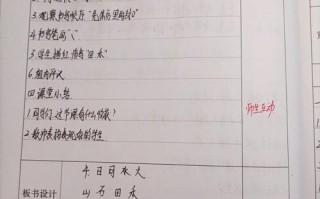 3.观察书写顺序"先外后里再封口"
4.书写笔画"乀"
5.学生描红,仿写"日、木"
6.组内评议
四课堂小结
1.同学们,这节课有什么收获?
2.教师表扬表现好的学生
师生互动
4.日月水火
山石田禾
板书设计